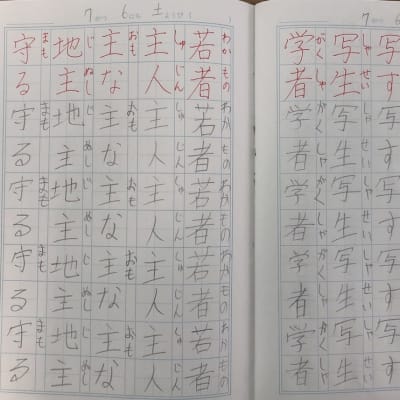 7がつ 6
写す写す写す写す写す
写生写生写生写生写生
しゃせいしゃせいしゃせいしゃせいしゃせい
学者学者学者学者学者
がくしゃがくしゃがくしゃがくしゃがくしゃ
7がつ 6にち 土ようび ( )
若者若者若者若者若者
わかものわかものわかものわかものわかもの
主人主人主人主人主人
しゅじんしゅじんしゅじんしゅじんしゅじん
主な主な主な主な主な
おもおもおもおもおも
地主地主地主地主地主
じぬしじぬしじぬしじぬしじぬし
守る守る守る守る守る
まもまもまもまもまも